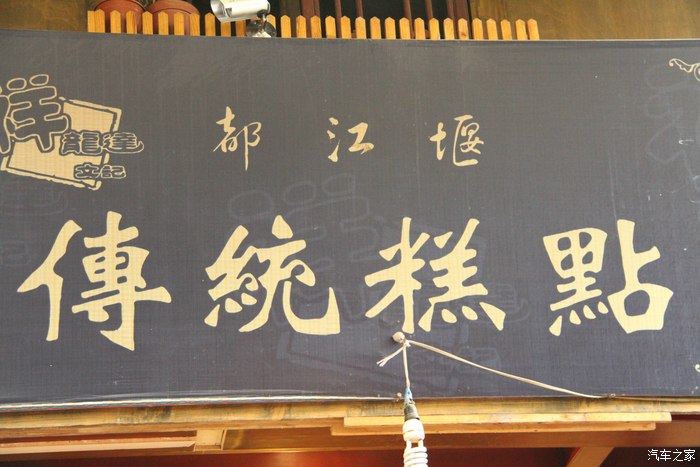 都江堰
傳統糕點
祥
龍達
文記
汽车之家